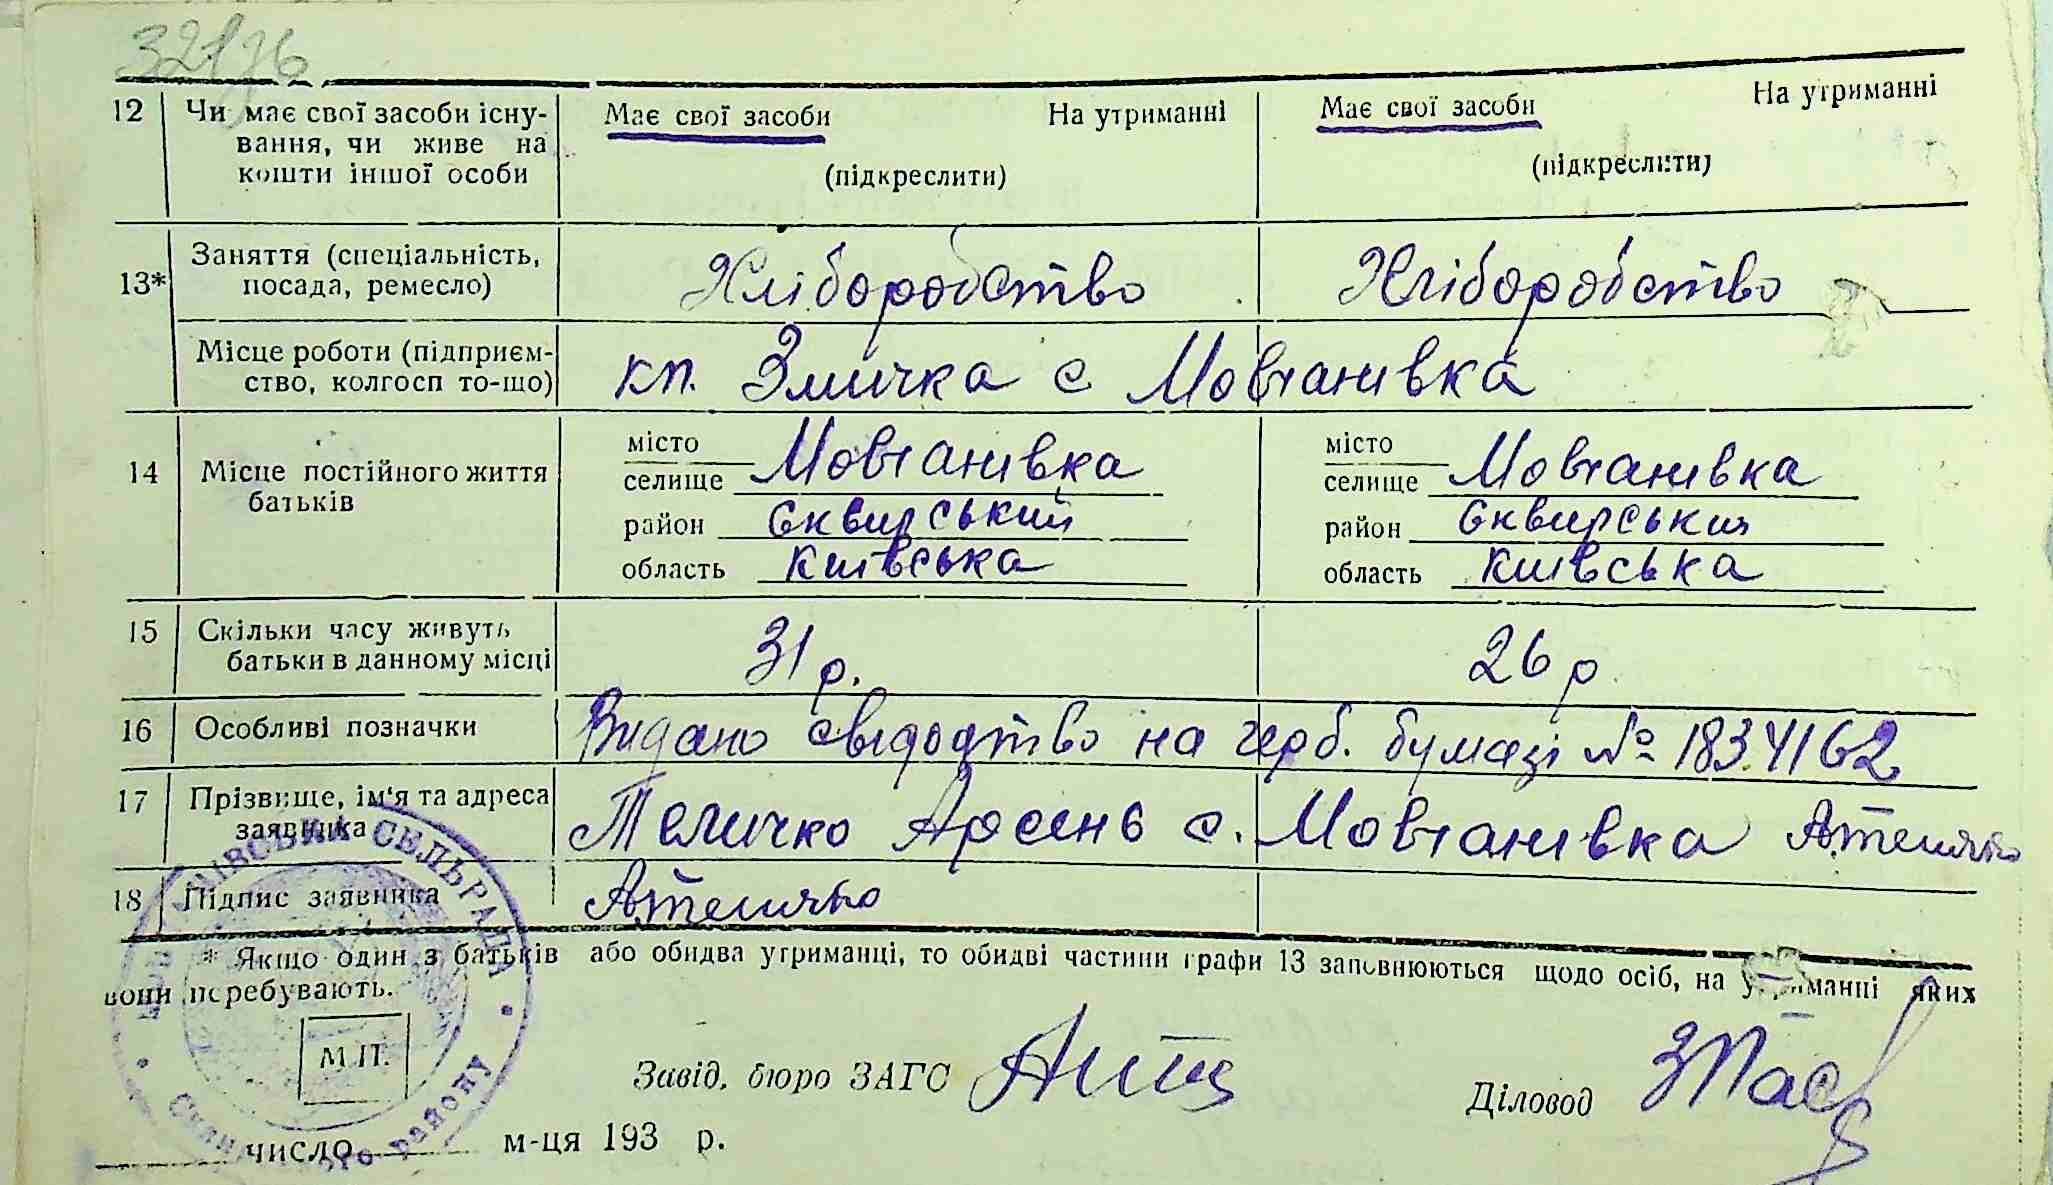 32
12 Чи має свої засоби існу- Має свої засоби На утриманні Має свої засоби На утриманні
вання, чи живе на
кошти іншої особи (підкреслити) (підкреслити)
13* Заняття (спеціальність, Хліборобство Хліборобство
посада, ремесло)
Місце роботи (підприєм- кп. Змичка с Мовчанівка
ство, колгосп то-що)
14 Місце постійного життя місто місто
батьків селище Мовчанівка селище Мовчанівка
район Сквирський район Сквирський
область Київська область Київська
15 Скільки часу живуть 31 р. 26 р.
батьки в данному місці
16 Особливі позначки Видано свідодтво на герб. бумазі № 1834162
17 Прізвище, ім'я та адреса Теличко Арсень с. Мовчанівка
заявника
18 Підпис заявника
* Якщо один з батьків або обидва утриманці, то обидві частини графи 13 заповнюються щодо осіб, на утриманні яких
вони перебувають.
М.П.
Завід. бюро ЗАГС
Діловод
число м-ця 193 р.
СЕЛЬРАДА
району